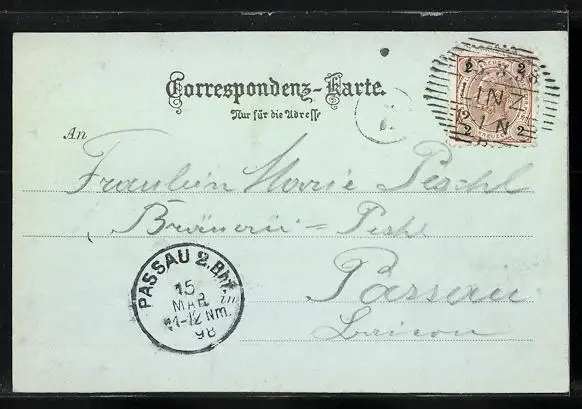 Correspondenz-Karte.
Nur für die Adresse
An
Fräulein Marie Peschl
Brauerei = Peschl
in
Passau
PASSAU 2. Bhf.
15
MAR
11-12 Nm.
98
2 2
2 2